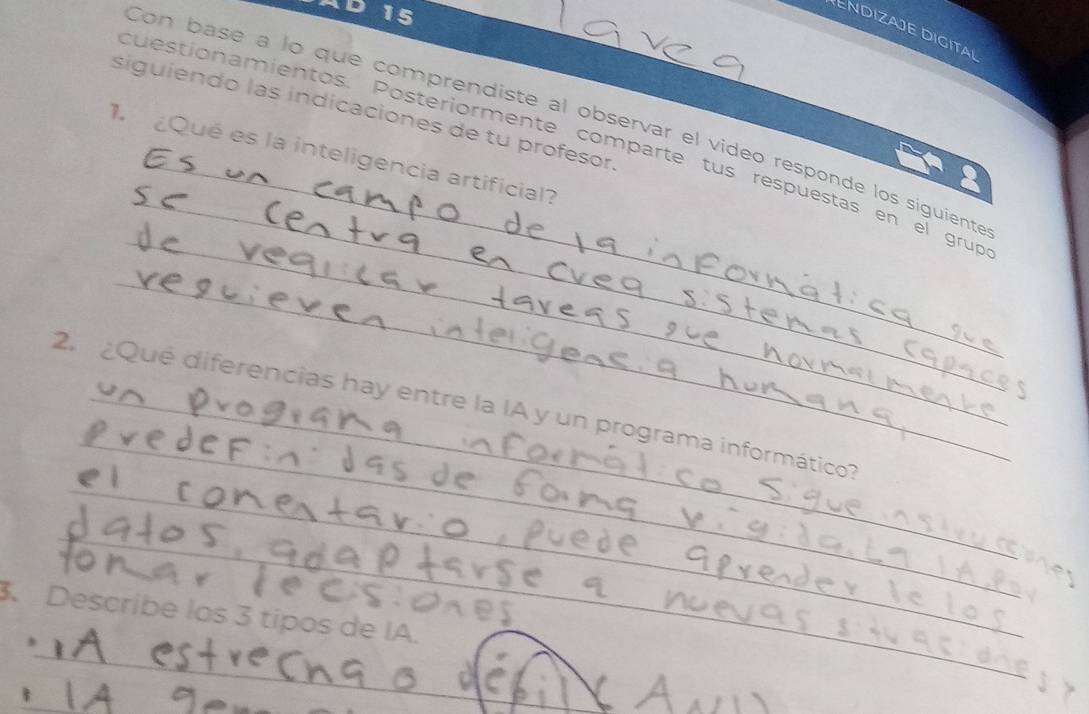 AD 15
RENDIZAJE DIGITAL
Con base a lo que comprendiste al observar el video responde los siguientes
cuestionamientos. Posteriormente comparte tus respuestas en el grupo
siguiendo las indicaciones de tu profesor.
1. ¿Qué es la inteligencia artificial?
Es un campo de la informática que
se centra en crea sistemas capaces
de reqlicar tareas que normalmente
requieren inteligensia humana,
2. ¿Qué diferencias hay entre la IA y un programa informático?
un programa informático sigue instrucciones
predefinidas de forma rigida. La IA, por
el comentario, puede aprender le los
datos, adaptarse a nuevas situaciones y
tomar lecisiones
3. Describe los 3 tipos de IA.
• IA estrecha o débil (
• IA